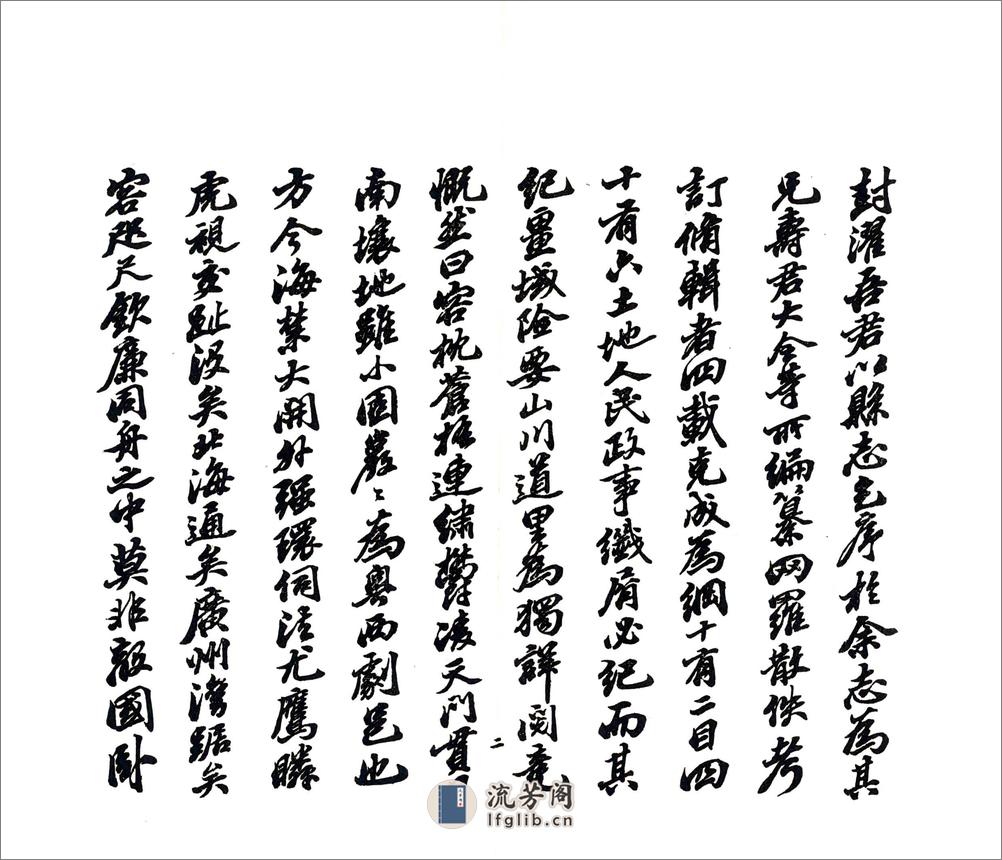 封濯吾君以縣志乞序於余志為其
兄壽君大令等所編纂网羅散佚考
訂脩輯者四載克成為綱十有二目四
十有六土地人民政事纖屑必紀而其
紀畺域險要山川道里為獨詳閱竟
慨然曰容枕蒼梧連繡鬱凌天門貫
南壤地雖小固巖巖為粵西劇邑也
方今海禁大開外强環伺法尤鷹瞵
虎視交趾沒矣北海通矣廣州灣踞矣
容咫尺欽廉同舟之中莫非敵國臥
二
流芳阁
lfglib.cn